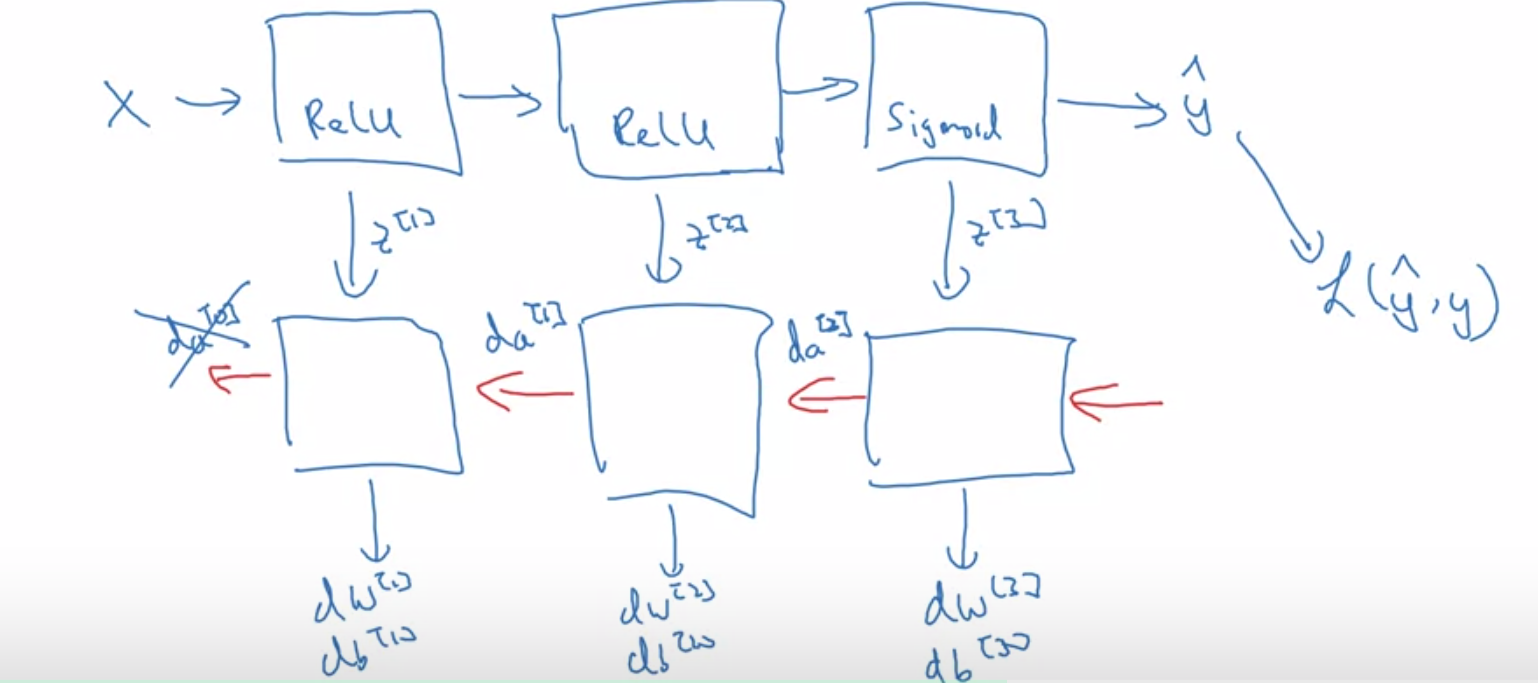 X → ReLU → ReLU → Sigmoid → ŷ
z^[1] z^[2] z^[3]
L(ŷ, y)
da^[0] da^[1] da^[2]
dw^[1] dw^[2] dw^[3]
db^[1] db^[2] db^[3]